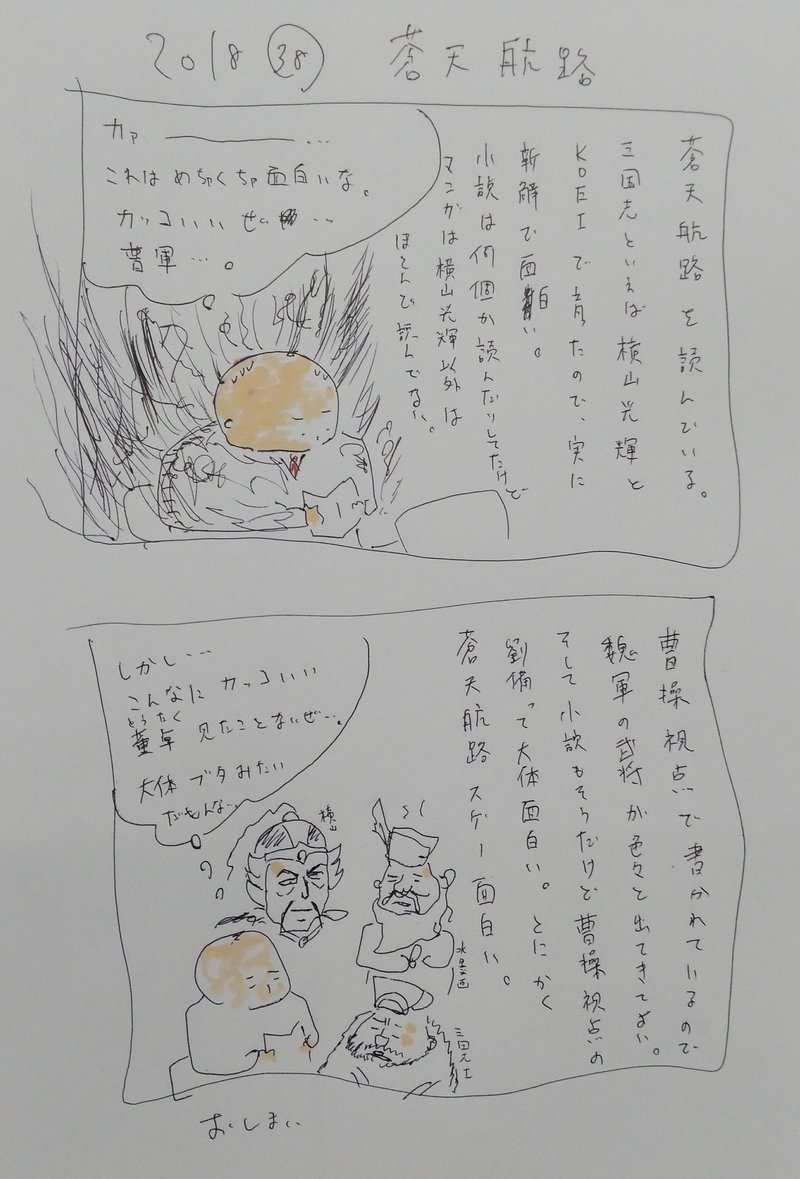 2018 ㊳ 蒼天航路
蒼天航路を読んでいる。
三国志といえば横山光輝と
KOEIで育ったので、実に
新解で面白い。
小説は何個か読んだりしてたけど
マンガは横山光輝以外は
ほとんど読んでない。
カァ――――…
これはめちゃくちゃ面白いな。
カッコいいぜ…
曹軍…。
曹操視点で書かれているので
魏軍の武将が色々と出てきてよい。
そして小説もそうだけど曹操視点の
劉備って大体面白い。とにかく
蒼天航路スゲー面白い。
しかし…
こんなにカッコいい
とうたく
董卓見たことないぜ…。
大体ブタみたい
だもんな…
横山
おしまい